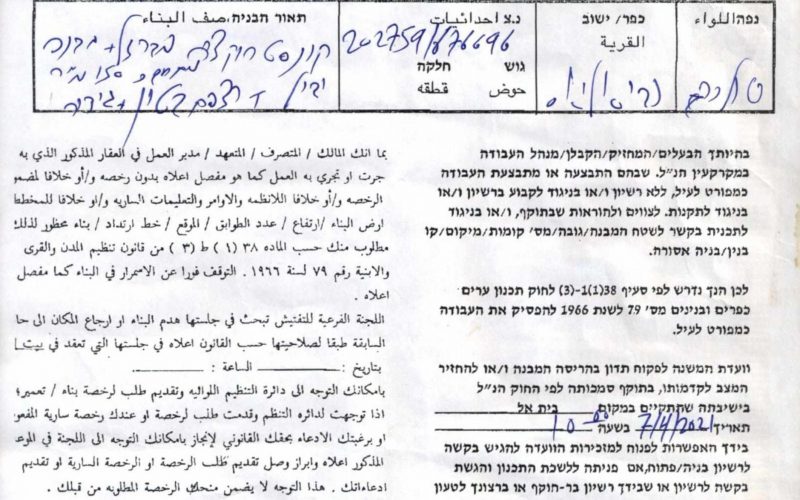 נפה اللواء
כפר/ ישוב
القرية
נ.צ احداثيات
202759/676696
גוש חלקה
حوض قطقه
תאור הבניה, صف البناء
קונסטרוקציה
בהיותך הבעלים/המחזיק/הקבלן/מנהל העבודה
במקרקעין הנ"ל. שבהם התבצעה או מתבצעת העבודה
כמפורט לעיל, ללא רשיון ו/או בניגוד לקבוע ברשיון ו/או
בניגוד לתקנות. לצווים ולחוראות שבתוקף, ו/או בניגוד
לתכנית בקשר לשטח המבנה/גובה/מס' קומות/מיקום/קו
בנין/בניה אסורה.
לכן הנך נדרש לפי סעיף 38(1)1-(3) לחוק תכנון ערים
כפרים ובנינים מס' 79 לשנת 1966 להפסיק את העבודה
כמפורט לעיל.
וועדת המשנה לפקוח תדון בהריסה המבנה ו/או להחזיר
המצב לקדמותו, בתוקף סמכותה לפי החוק הנ"ל
בישיבתה שתתקיים במקום בית אל
תאריך 7/4/2021 בשעה 10-00
בידך האפשרות לפנות למזכירות הוועדה להגיש בקשה
לרשיון בניה/פתוח, אם פניתה ללשכת התכנון והגשת
בקשה לרשיון או שבידך רשיון בר-חוקף או ברצונך לטעון
بما انك المالك / المتصرف / المتعهد / مدير العمل في العقار المذكور الذي به
جرت او تجري به العمل كما هو مفصل اعلاه بدون رخصه و/أو خلافا لمضمو
الرخصه و/أو خلافا اللانظمه والاوامر والتعليمات الساريه و/او خلافا للمخطط
ارض البناء /ارتفاع / عدد الطوابق / الموقع / خط ارتداد / بناء محظور لذلك
مطلوب منك حسب الماده ٣٨ (١) ط (٣) من قانون تنظيم المدن والقرى
والابنية رقم ٧٩ لسنة ١٩٦٦. التوقف فورا عن الاسمرار في البناء كما مفصل
اعلاه .
اللجنة الفرعية للتفتيش تبحث في جلستها هدم البناء او ارجاع المكان الى حا
السابقة طبقا لصلاحيتها حسب القانون اعلاه في جلستها التي تعقد في بيت ا
بتاريخ : الساعة :
بامكانك التوجه الى دائرة التنظيم اللوائيه وتقديم طلب لرخصة بناء / تعمير؛
اذا توجهت لدائره التنظم وقدمت طلب لرخصة او عندك رخصة سارية المفعو
او برغبتك الادعاء بحقك القانوني لإنجاز بأمكانك التوجه الى اللجنة في الموعد
المذكور اعلاه وابراز وصل تقديم طلب الرخصة او الرخصة السارية او تقديم
ادعاءاتك . هذا التوجه لا يضمن منحك الرخصة المطلوبه من قبلك .